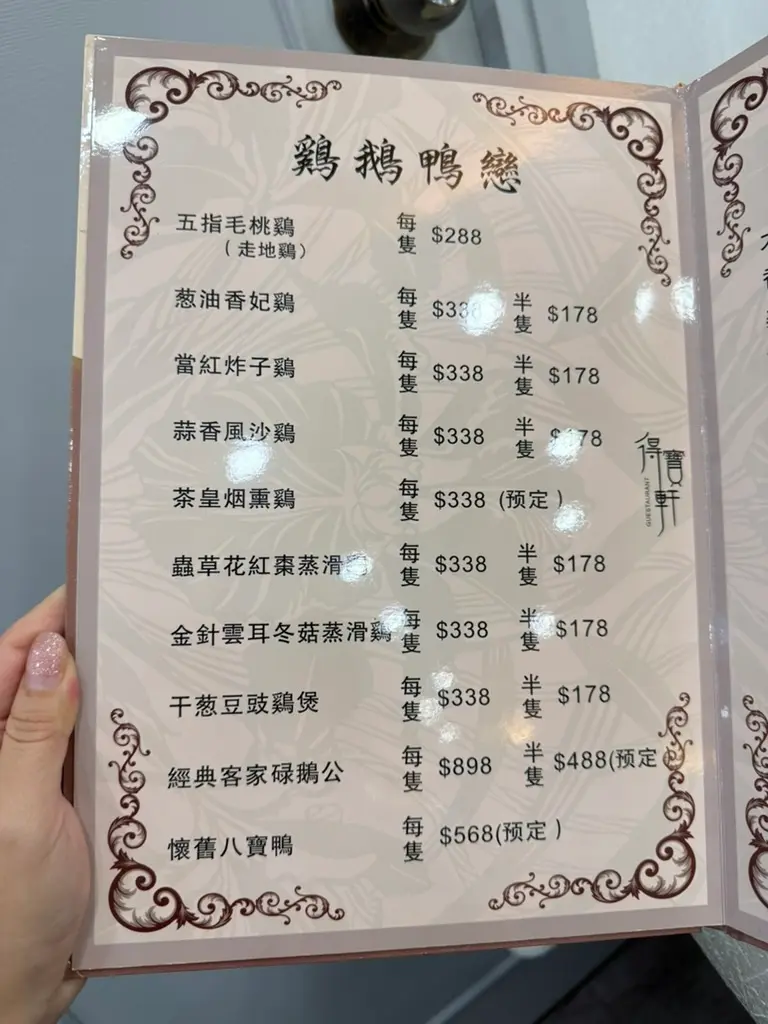 鷄鵝鴨戀
五指毛桃鷄 每隻 $288
（走地鷄）
葱油香妃鷄 每隻 半隻 $178
當紅炸子鷄 每隻 $338 半隻 $178
蒜香風沙鷄 每隻 $338 半隻
茶皇烟熏鷄 每隻 $338 (预定）
蟲草花紅棗蒸滑 每隻 $338 半隻 $178
金針雲耳冬菇蒸滑鷄 每隻 $338 半隻 $178
干葱豆豉鷄煲 每隻 $338 半隻 $178
經典客家碌鵝公 每隻 $898 半隻 $488(预定
懷舊八寶鴨 每隻 $568(预定）
得寶軒